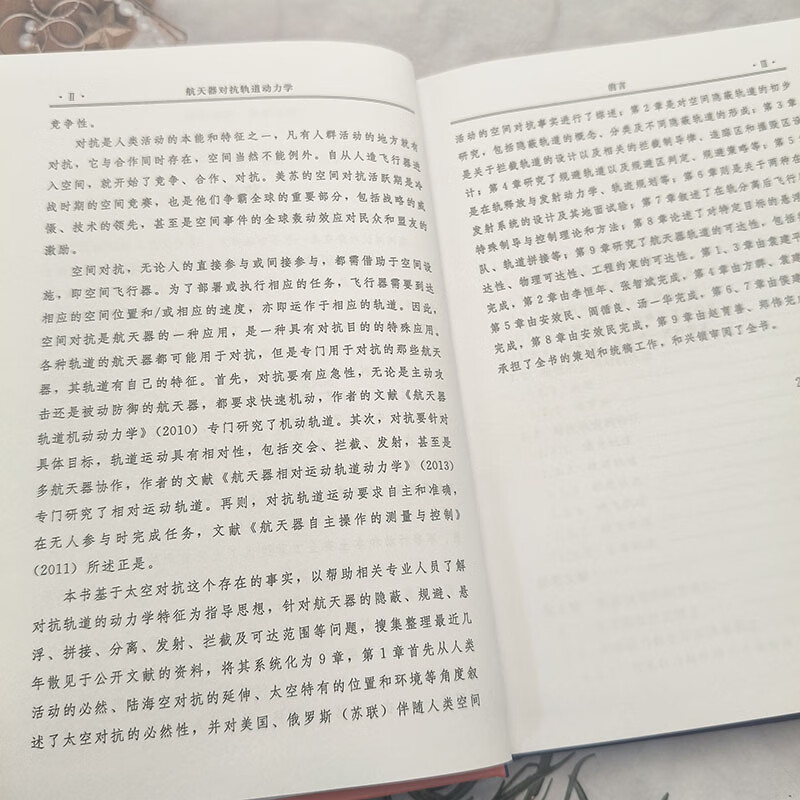 · II ·
航天器对抗轨道动力学
竞争性。
对抗是人类活动的本能和特征之一，凡有人群活动的地方就有
对抗，它与合作同时存在，空间当然不能例外。自从人造飞行器进
入空间，就开始了竞争、合作、对抗。美苏的空间对抗活跃期是冷
战时期的空间竞赛，也是他们争霸全球的重要部分，包括战略的威
慑、技术的领先，甚至是空间事件的全球轰动效应对民众和盟友的
激励。
空间对抗，无论人的直接参与或间接参与，都需借助于空间设
施，即空间飞行器。为了部署或执行相应的任务，飞行器需要到达
相应的空间位置和/或相应的速度，亦即运作于相应的轨道。因此，
空间对抗是航天器的一种应用，是一种具有对抗目的的特殊应用。
各种轨道的航天器都可能用于对抗，但是专门用于对抗的那些航天
器，其轨道有自己的特征。首先，对抗要有应急性，无论是主动攻
击还是被动防御的航天器，都要求快速机动，作者的文献《航天器
轨道机动动力学》（2010）专门研究了机动轨道。其次，对抗要针对
具体目标，轨道运动具有相对性，包括交会、拦截、发射，甚至是
多航天器协作，作者的文献《航天器相对运动轨道动力学》（2013）
专门研究了相对运动轨道。再则，对抗轨道运动要求自主和准确，
在无人参与时完成任务，文献《航天器自主操作的测量与控制》
（2011）所述正是。
本书基于太空对抗这个存在的事实，以帮助相关专业人员了解
对抗轨道的动力学特征为指导思想，针对航天器的隐蔽、规避、悬
浮、拼接、分离、发射、拦截及可达范围等问题，搜集整理最近几
年散见于公开文献的资料，将其系统化为 9 章，第 1 章首先从人类
活动的必然、陆海空对抗的延伸、太空特有的位置和环境等角度叙
述了太空对抗的必然性，并对美国、俄罗斯（苏联）伴随人类空间
前言
· III ·
活动的空间对抗事实进行了综述；第 2 章是对空间隐蔽轨道的初步
研究，包括隐蔽轨道的概念、分类及不同隐蔽轨道的形成；第 3 章
是关于拦截轨道的设计以及相关的拦截制导律、逃脱区和捕获区设
计；第 4 章研究了规避轨道以及规避区判定、规避策略等；第 5 章
是在轨释放与发射动力学、轨迹规划等；第 6 章则是关于两种在
发射系统的设计及其地面试验；第 7 章叙述了在轨分离后飞行
特殊制导与控制理论和方法；第 8 章论述了对特定目标的悬浮
队、轨道拼接等；第 9 章研究了航天器轨道的可达性，包括
达性、物理可达性、工程约束的可达性。第 1、3 章由袁建平
完成，第 2 章由李恒年、张智斌完成，第 4 章由方群、袁建
第 5 章由安效民、闫循良、汤一华完成，第 6、7 章由侯建
完成，第 8 章由安效民完成，第 9 章由赵育善、郑伟完
承担了全书的策划和统稿工作，和兴锁审阅了全书。
2